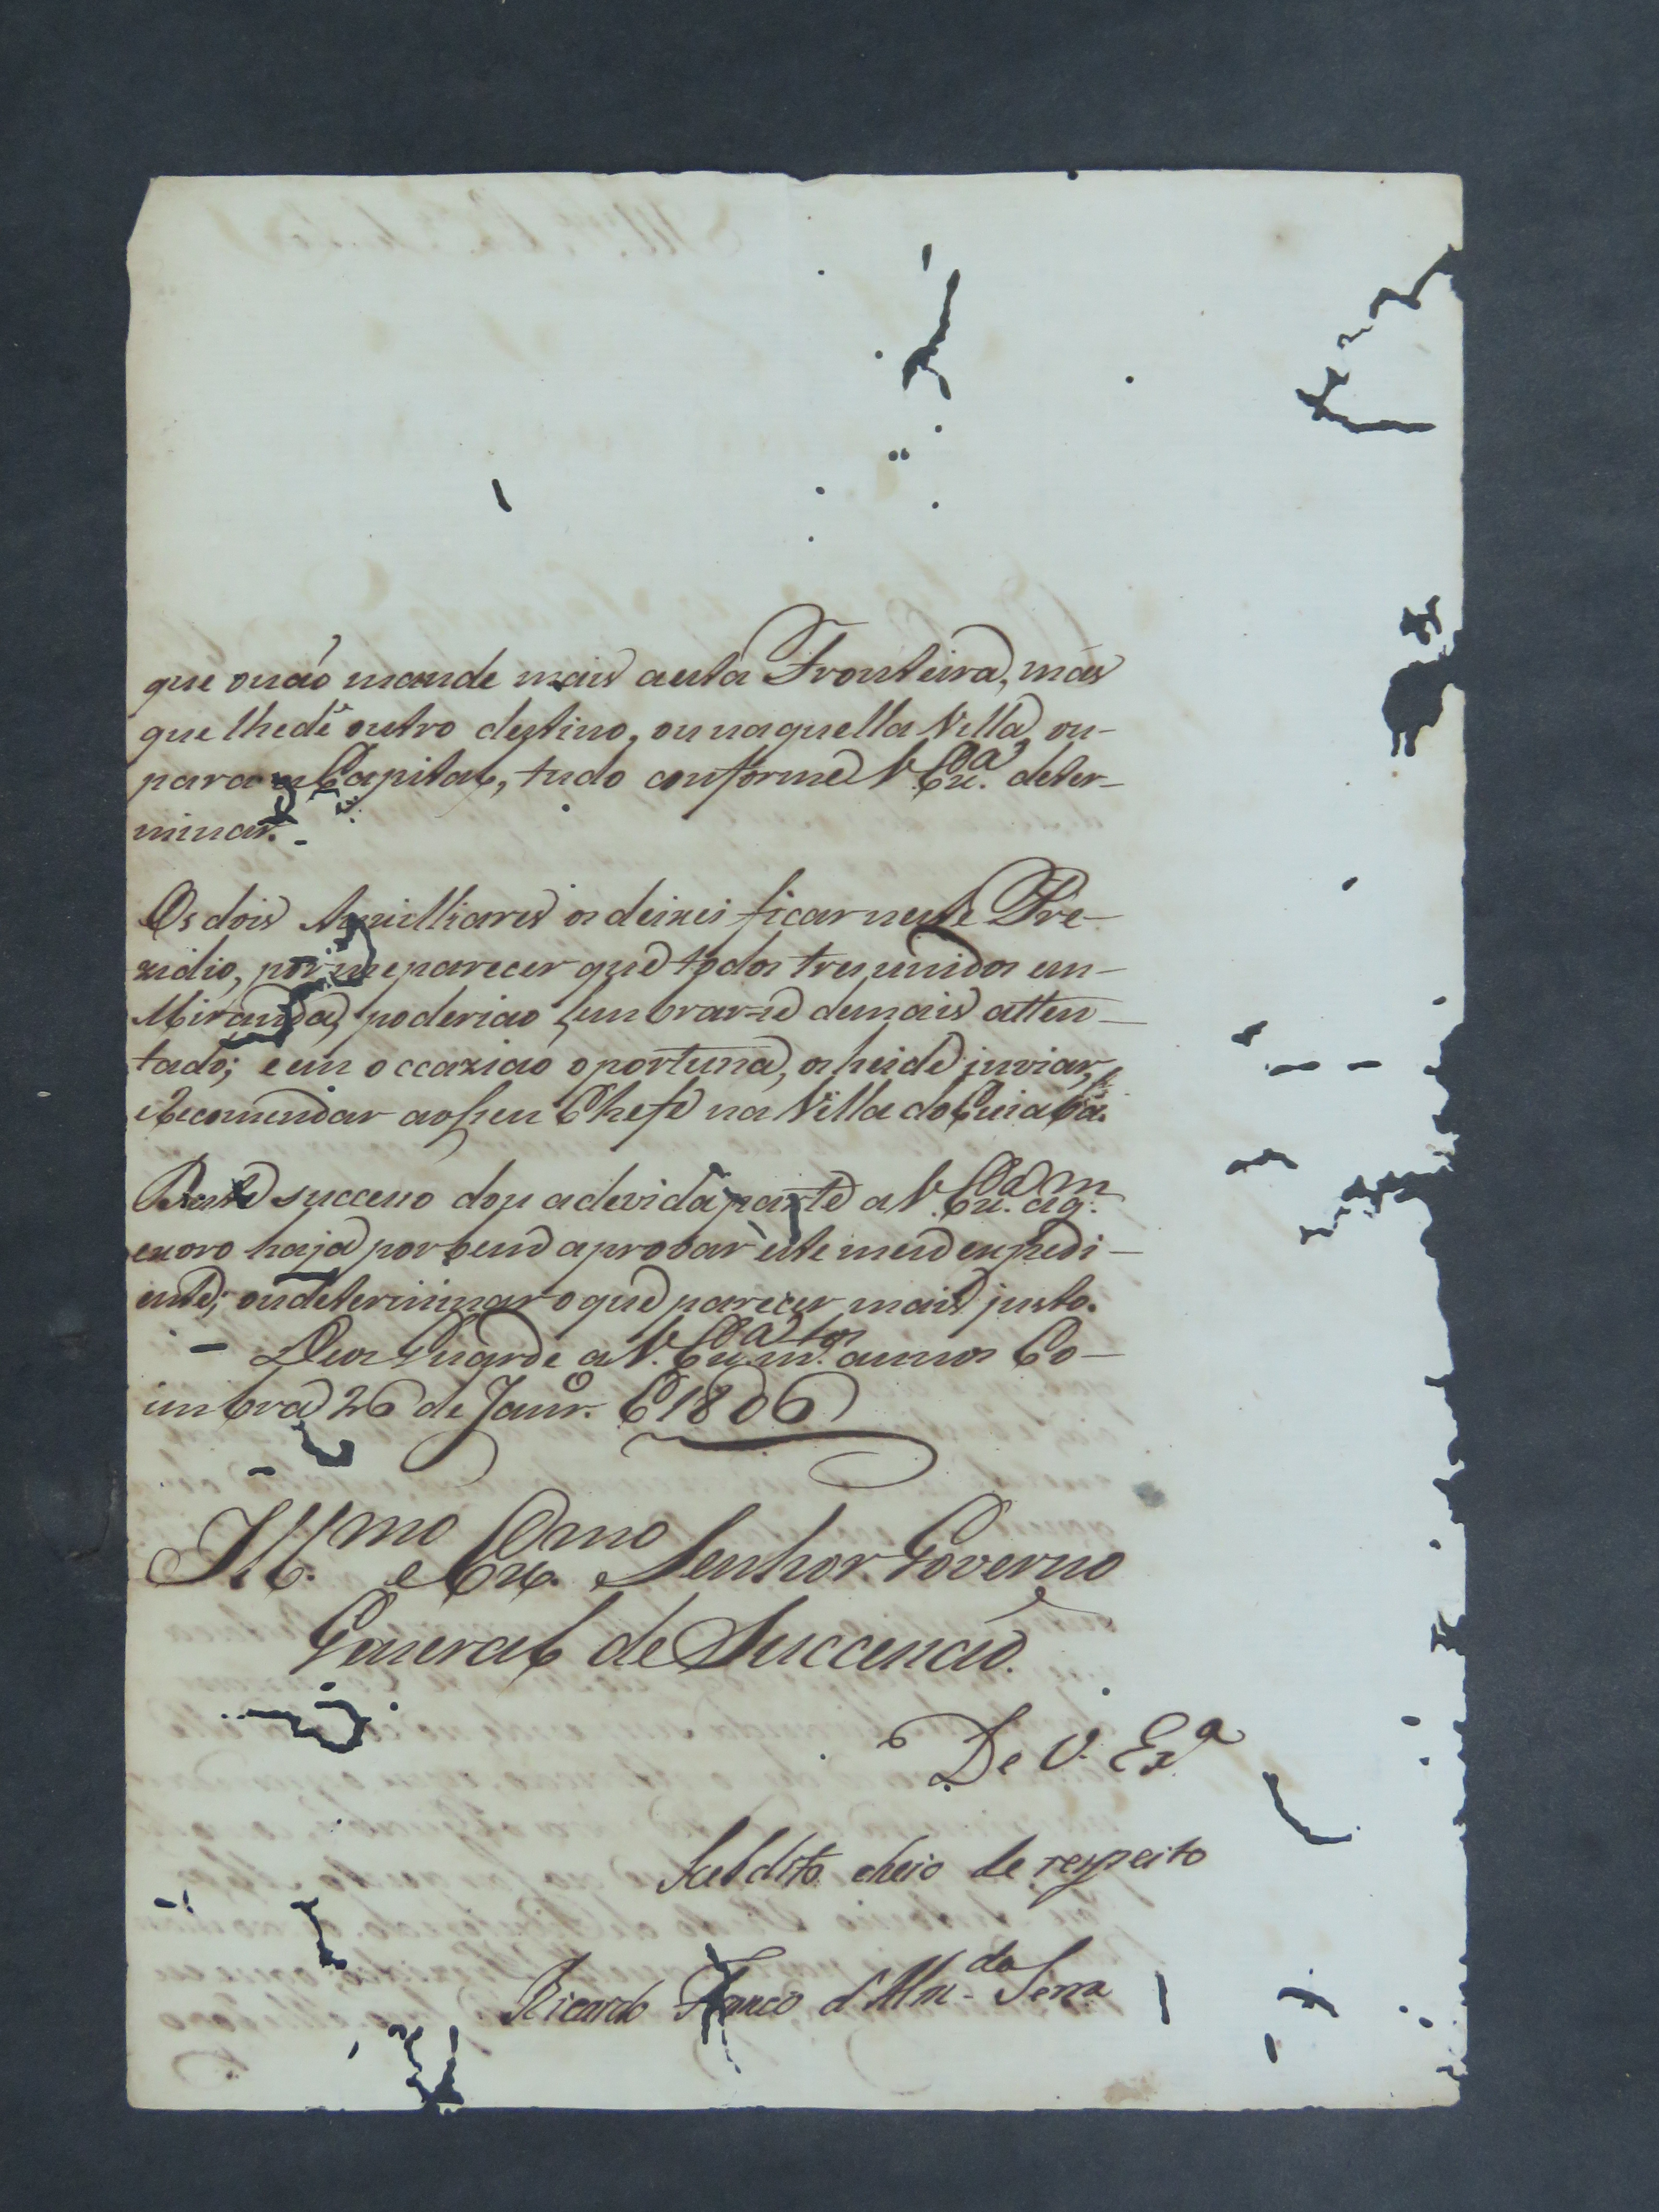 que onaõ mande mais aesta Fronteira, mas
que lhedê outro destino, ou naquella Villa, ou
para a Capital, tudo conforme V. Ex.ª deter-
minar.
Os dois Auxilliares os deixei ficar neste Pre-
zidio, por me parecer que todos tres unidos em
Miranda, poderiaõ lembrar-se demais atten-
tado; e em occaziaõ oportuna, os heide inviar, e
Recomendar ao seu Chefe na Villa do Cuiabá.
Deste successo dou adevida parte a V. Ex.ª aq.m
exoro haja por bem aprovar este meu expedi-
ente; ou determinar o que parecer mais justo.
Deos Guarde a V. Ex.ª m.tos annos Co-
imbra 26 de Janr.º E 1806
Ill.mo e Ex.mo Senhor Governo
General de Successaõ.
De V. Ex.ª
Subdito cheio de respeito
Ricardo Franco d'Alm.da Serra